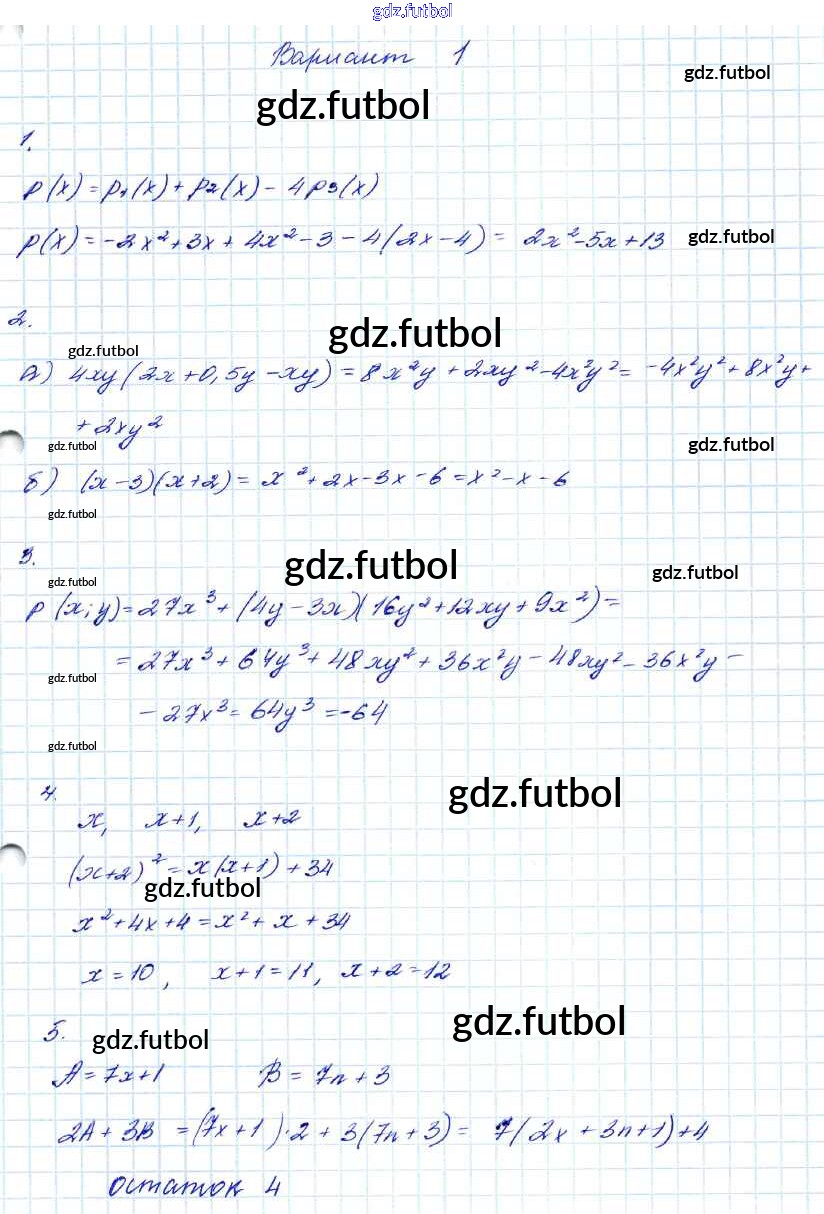 gdz.futbol
Вариант 1
gdz.futbol
gdz.futbol
1.
p(x) = p1(x) + p2(x) - 4p3(x)
p(x) = -2x² + 3x + 4x² - 3 - 4(2x - 4) = 2x² - 5x + 13
gdz.futbol
2.
gdz.futbol
gdz.futbol
а) 4xy(2x + 0,5y - xy) = 8x²y + 2xy² - 4x²y² = -4x²y² + 8x²y +
+ 2xy²
gdz.futbol
gdz.futbol
б) (x - 3)(x + 2) = x² + 2x - 3x - 6 = x² - x - 6
gdz.futbol
3.
gdz.futbol
gdz.futbol
gdz.futbol
p(x; y) = 27x³ + (4y - 3x)(16y² + 12xy + 9x²) =
= 27x³ + 64y³ + 48xy² + 36x²y - 48xy² - 36x²y -
gdz.futbol
- 27x³ = 64y³ = -64
gdz.futbol
4.
gdz.futbol
x, x+1, x+2
(x+2)² = x(x+1) + 34
gdz.futbol
x² + 4x + 4 = x² + x + 34
x = 10, x+1 = 11, x+2 = 12
5.
gdz.futbol
gdz.futbol
A = 7x+1 B = 7n + 3
2A + 3B = (7x + 1)·2 + 3(7n + 3) = 7(2x + 3n + 1) + 4
остаток 4